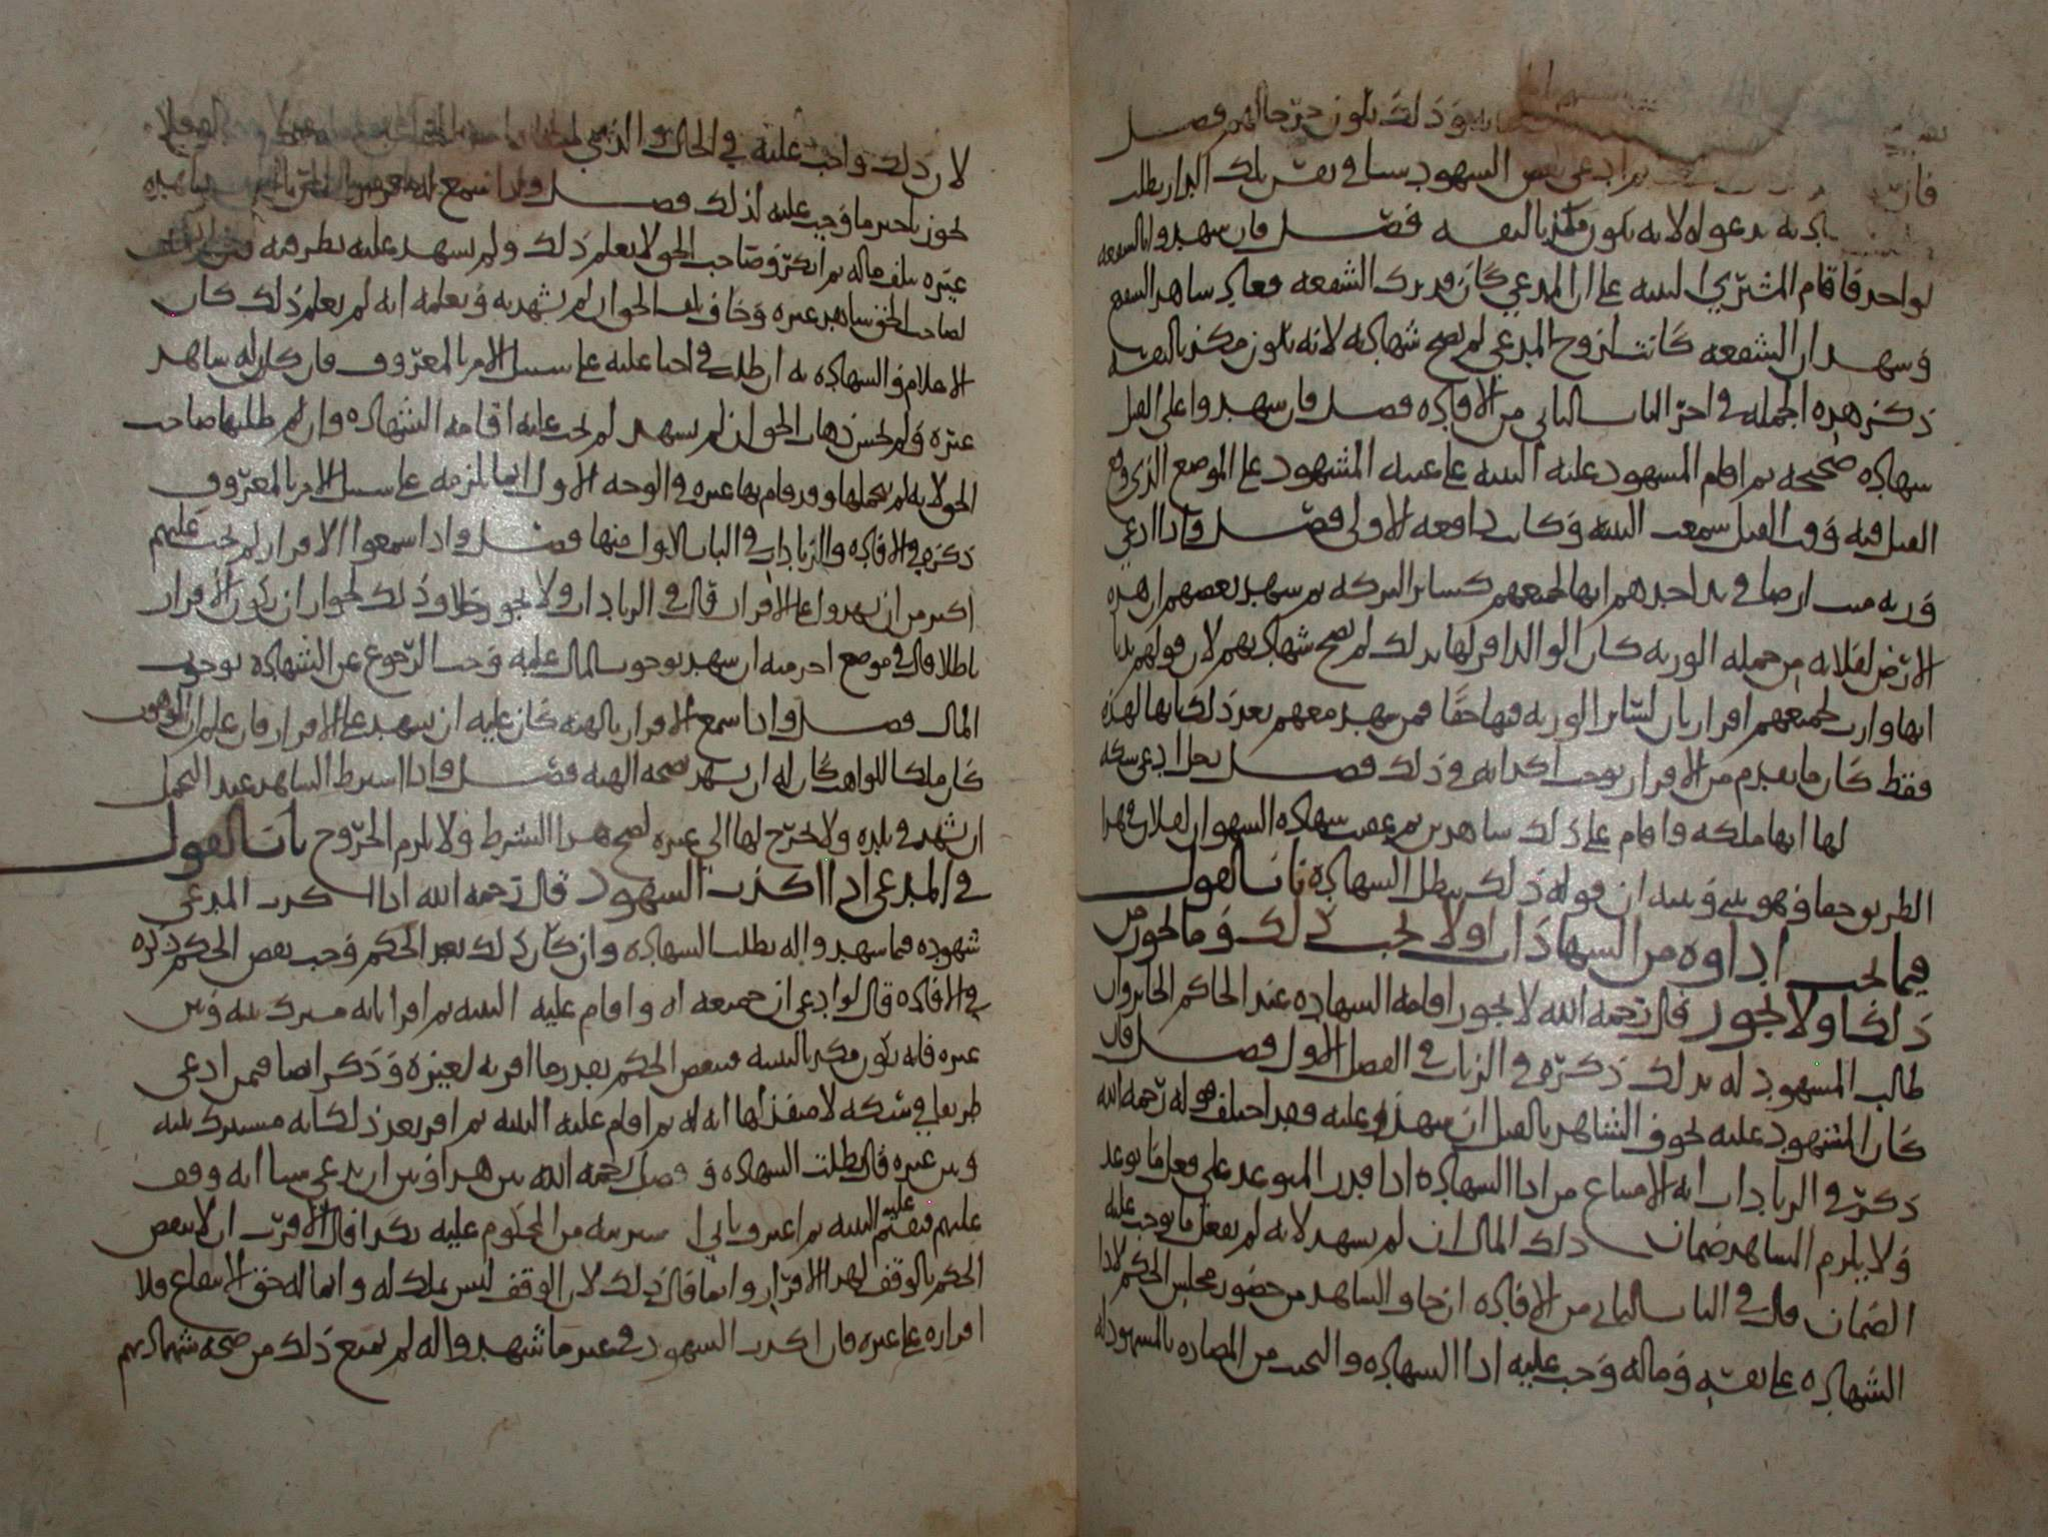 وذلك يكون جرحا لهم فصل
فان ثم ادعى بعض الشهود شيا في نفس تلك الدار بطلت
شهادته بدعواه لانه يكون مكذبا لنفسه فصل فان شهدوا بالشفعة
لواحد فاقام المشتري البينة على ان المدعي كان قد ترك الشفعة فعاد شاهد الشفيع
وشهد ان الشفعة كانت لزوج المدعي لم تصح شهادته لانه يكون مكذبا لنفسه
ذكر هذه الجملة في اخر الباب الثاني من الافادة فصل فان شهدوا على القتل
شهادة صحيحة ثم اقام المشهود عليه البينة على غيبة المشهود على الموضع الذي وقع
القتل فيه وقت القتل سمعت البينة وكانت دافعة الاولى فصل واذا ادعى
ورثة ميت ارضا في يد احدهم انها لجميعهم كسائر التركة ثم شهد بعضهم ان هذه
الارض لفلانة من جملة الورثة كان الوالد اقر لها بذلك لم تصح شهادتهم لان قولهم بديا
انها وارث لجميعهم اقرار بان لسائر الورثة فيها حقا فمن شهد معهم بعد ذلك بانها لهذه
فقط كان ما تقدم من الاقرار يوجب اكذابه في ذلك فصل رجل ادعى سكة
لها انها ملكه واقام على ذلك شاهدين ثم عقب شهادة الشهود ان لفلان في هذا
الطريق حقا فهو بيني وبينه ان قوله ذلك يبطل الشهادة باب القول
فيما يجب اداوه من الشهادات او لا يجب ذلك وما يجوز من
ذلك او لا يجوز قال رحمه الله لا يجوز اقامة الشهادة عند الحاكم الجائر وان
طالب المشهود له بذلك ذكره في الزيادات في الفصل الاول فصل قال
كان المشهود عليه يخوف الشاهد بالقتل ان شهد عليه فقد اختلف قوله رحمه الله
ذكر في الزيادات له الامتناع من اداء الشهادة اذا قدر المتوعد على فعل ما توعد
ولا يلزم الشاهد ضمان ذلك المال ان لم يشهد لانه لم يفعل ما يوجب عليه
الضمان وقال في الباب الثاني من الافادة ان خاف الشاهد من حضور مجلس الحكم لاداء
الشهادة على نفسه وماله وجب عليه اداء الشهادة والبحث من المضاره بالمشهود له
لان ذلك واجب عليه في الحال والذي
يجوز تاخير ما وجب عليه لذلك فصل واذا سمع
غيره بتلف ماله ثم انكر وصاحب الحق لا يعلم ذلك ولم يشهد عليه نظر فيه
لصاحب الحق شاهد غيره وخاف تلف الحق ان لم يشهد به ويعلمه انه لم يعلم ذلك كان
الاعلام والشهادة به ان طلب في احيا عليه على سبيل الامر بالمعروف فان كان له شاهد
غيره ولم يخش ذهاب الحق ان لم يشهد لم يجب عليه اقامة الشهادة وان لم طلبها صاحب
الحق لانه لم يحملها وقد قام بها غيره في الوجه الاول انما يلزمه على سبيل الامر بالمعروف
ذكره في الافادة والزيادات في الباب الاول منها فصل واذا سمعوا الاقرار لم يجب عليهم
اكثر من ان يشهدوا على الاقرار قال في الزيادات ولا يجوز خلاف ذلك لجواز ان يكون الاقرار
باطلا وقال في موضع اخر منه ان شهد بوجوب المال عليه وجب الرجوع عن الشهادة بوجوب
المال فصل واذا سمع الاقرار بالهبة كان عليه ان يشهد على الاقرار فان علم ان الموهوب
كان ملكا للواهب كان له ان يشهد بصحة الهبة فصل واذا اشترط الشاهد عند التحمل
ان يشهد في بلده ولا يخرج لها الى غيره لصح هذا الشرط ولا يلزم الخروج باب القول
في المدعي اذا اكذب الشهود قال رحمه الله اذا اكذب المدعي
شهوده فيما شهدوا له بطلت الشهادة وان كان ذلك بعد الحكم وجب نقض الحكم ذكره
في الافادة قال لو ادعى ان جميعه له واقام عليه البينة ثم اقر بانه مشترك بينه وبين
غيره فانه يكون مكذبا لبينته فينقض الحكم بقدر ما اقر به لغيره وذكر ايضا فيمن ادعى
طريقا في سكة لا منفذ لها انه له ثم اقام عليه البينة ثم اقر بعد ذلك بانه مشترك بينه
وبين غيره قال بطلت الشهادة وفصل رحمه الله بين هذا وبين ان يدعي شيا انه وقف
عليهم فيقيم عليه البينة ثم اعترف بان شربته من المحكوم عليه بكذا قال الاقرب ان لا ينقض
الحكم بالوقف لهذا الاقرار وانما قال ذلك لان الوقف ليس بملك له وانما له حق الانتفاع فلا
اقراره على غيره فان اكذب الشهود في غير ما شهدوا له لم يمنع ذلك من صحة شهادتهم